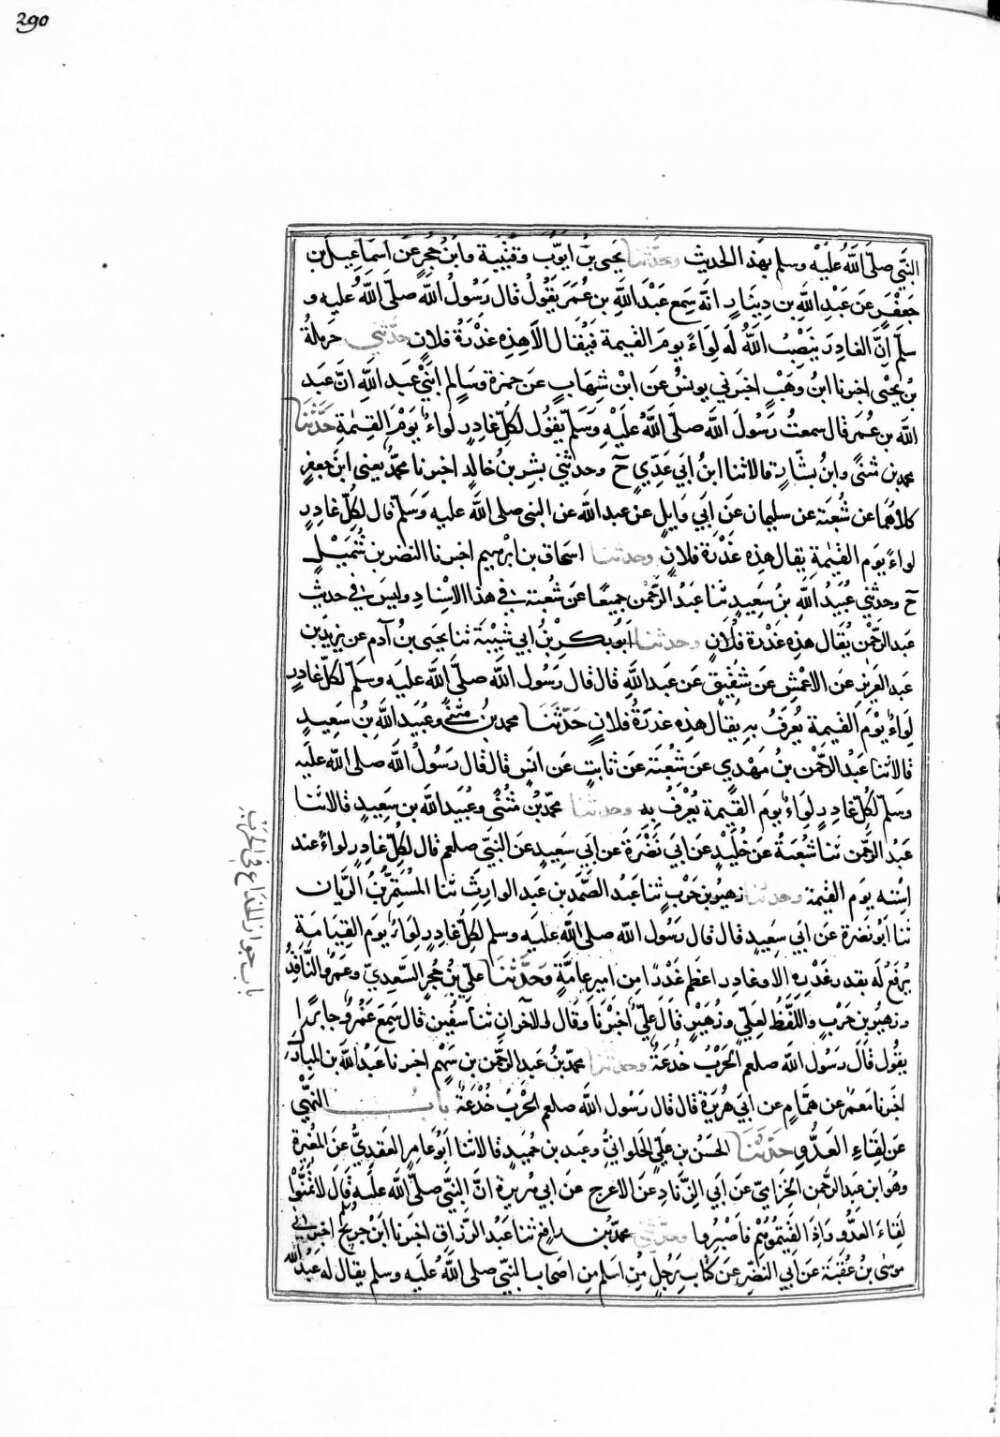 290
النَّبِي صلّى اللّٰه عليْه وسلم بهَذ الحديث وحدّثنا يحيى بنُ ايوّبَ وقتيبة وابنُ حُجرٍ عَن اسمَاعيل بن
جعفرٍ عَن عَبْدِ اللّٰهِ بن دِينارٍ انّه سَمِعَ عَبْدَ اللّٰهِ بن عُمَرَ يَقُولُ قال رَسُولُ اللّٰه صلّى اللّٰه عليه و
سلّم اِنَّ الغادِرَ ينصِبُ اللّٰهُ له لِواءً يومَ القيمة فيُقال اَلَا هذِه غَدْرَةُ فلانٍ حدّثني حَرملةُ
بن يحيٰى اخبرنا ابنُ وهبٍ اخبرني يونسُ عن ابنِ شِهابٍ عن حمزة وسَالم ابنَيْ عبد اللّٰه انّ عبد
اللّٰه بن عُمَر قال سمعتُ رَسُولَ اللّٰه صلّى اللّٰه عليْهِ وسَلّم يقولُ لكلّ غادِرٍ لواءٌ يَوْمَ القِيمٰةِ حَدَّثَنَا
محمد بن مُثنىً وابنُ بشّارٍ قالا ثنا ابنُ ابي عَدِيّ ح وحدثني بشر بنُ خالدٍ اخبرنا محمّدٌ يعني ابنَ جعفرٍ
كلاهُما عن شُعبَة عن سليمان عَن اَبي وَايلٍ عن عبد اللّٰه عن النبي صلى اللّٰه عليه وَسَلّم قال لكلّ غادِرٍ
لواءٌ يوم القيٰمةِ يقال هذِه غَدْرة فلانٍ وحدثنا اسحاق بن ابرٰهيم اخبرنا النضر بن شُمَيْلٍ
ح وحدثني عُبَيدُ اللّٰهِ بنُ سَعِيدٍ ثنا عَبدُ الرّحمٰن جميعًا عن شُعبة في هذا الاسْناد وليسَ في حديث
عبد الرّحمٰن يُقال هذِه غَدْرة فُلَانٍ وحدثنا ابُو بكر بْنُ ابي شيْبَة ثنا يحيى بنُ آدم عن يزيد بن
عبد العزيز عَن الاعْمش عن شقيقٍ عن عبد اللّٰهِ قال قال رَسُول اللّٰه صلّى اللّٰه عليَه وسَلّم لكلّ غادِرٍ
لِواءٌ يوْمَ القيمة يُعرَفُ بهِ يقال هذِه غدرَةُ فلانٍ حَدّثَنَا محمد بنُ مثنىً وعُبَيد اللّٰه بنُ سَعِيدٍ
قالا ثنا عَبدُ الرّحمْن بن مَهْدي عن شعبَة عن ثابتٍ عن انسٍ قال قال رَسُولُ اللّٰه صلى اللّٰه عليَه
وسَلم لكلّ غادِرٍ لِواءٌ يومَ القيمة يُعْرَفُ به وحدثنا محمّد بنُ مُثنًّى وعُبَيد اللّٰه بن سَعِيدٍ قالا ثنا
عَبْدُ الرّحمن ثنا شُعبَةُ عَن خُلَيْدٍ عن ابي نَضْرَةَ عن ابي سَعِيدٍ عن النبّي صلعم قال لكلّ غادِرٍ لواءٌ عند
اِسْتهِ يَوم القيٰمة وحدثنا زهيْر بن حَربٍ ثنا عَبْد الصّمَد بن عَبد الوارِث ثنا المُسْتمِرّ بنُ الرّيان
ثنا ابُو نَضرة عن ابي سَعِيدٍ قال قال رَسُول اللّٰه صلى اللّٰه عليَه وسلم لكلّ غادِرٍ لواءٌ يوم القِيَامَة
يُرفعُ لَه بقدرِ غدْرِه الا ولا غادِر اعظم غَدْرًا من امير عامّةٍ وحَدَّثنا عليّ بن حُجرٍ السَّعديّ وعَمرٌو النّاقدُ
وزهيرُ بن حَربٍ واللّفظ لعليّ وزهَيرٍ قَالَ عليّ اَخبَرنَا وقال الآخران ثنا سفيٰن قال سَمِعَ عَمرٌو جابرًا
يقول قال رَسُول اللّٰه صلعم الحَرْبُ خدْعَةٌ وحدثنا محمّد بنُ عبد الرّحمٰن بن سَهْم اخبرنا عَبدُ اللّٰه بن المبارك
اخبرنا مَعمَرٌ عن همّامٍ عن ابي هُرَيْرةَ قال قال رَسُول اللّٰه صلعم الحَرْبُ خُدْعَةٌ باب النهْيِ
عن لِقاءِ العدُوِّ حَدَّثَنَا الحسَن بن عَليّ الحلوانيّ وعبد بن حُميدٍ قالا ثنا ابُو عامِرٍ العَقديُّ عَن المُغيرة
وهُو ابن عَبدِ الرَّحمٰن الحِزاميّ عن ابي الزّنادِ عَن الاعرج عن ابي هُريرة انّ النبيّ صلّى اللّٰه عليَه وسلم قال لا تمنّوْا
لِقاءَ العدوّ واِذا لقيتموهُم فاصبرُوا وحدّثني محمّد بن رافعٍ ثنا عَبدُ الرّزاق اخبرنا ابنُ جريجٍ اخبرني
موسى بن عُقبَة عَن ابي النضر عن كتابِ رَجُلٍ من اسلمَ مِن اصحاب النبيّ صلى اللّٰه عليَه وسلم يقال له عَبدُ اللّٰه
باب جواز الخداع في الحرب